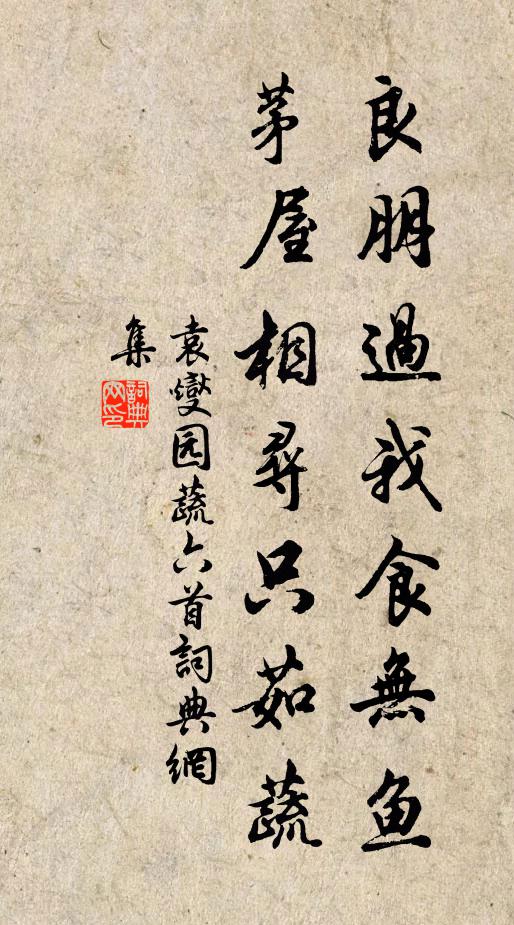 良朋過我食無鱼
茅屋相尋只茹蔬
袁燮园蔬六首詞典網
集
詞典網印